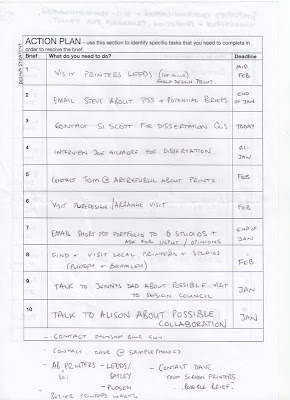 ACTION PLAN - use this section to identify specific tasks that you need to complete in
order to resolve the brief.
Brief What do you need to do? Deadline
1 VISIT PRINTERS LEEDS MID FEB
DESIGN PRINT
2 EMAIL STEVE ABOUT PS3 + POTENTIAL BRIEFS END OF JAN
3 CONTACT SI SCOTT FOR DISSERTATION Q'S TODAY
4 INTERVIEW JON GILMORE FOR DISSERTATION JAN
5 CONTACT TOM @ ARTREPUBLIC ABOUT PRINTS FEB
6 VISIT PUREDESIGN / ARRANGE VISIT FEB
7 EMAIL SHORT PDF PORTFOLIO TO D STUDIOS + END OF JAN
ASK FOR INPUT / OPINIONS
8 FIND + VISIT LOCAL PRINTERS + STUDIOS FEB
(PUDSEY + BRAMLEY)
9 TALK TO JENNYS DAD ABOUT POSSIBLE VISIT JAN
TO DESIGN COUNCIL
10 TALK TO ALISON ABOUT POSSIBLE JAN
COLLABORATION
- CONTACT
- CONTACT DAVE @
- AB PRINTERS - LEEDS / - CONTACT DAVE
BATLEY FROM SCREEN PRINTERS
- PUDSEY POSSIBLE BRIEF.
PRINTERS